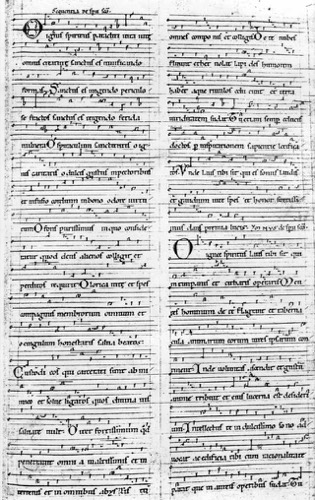 Sequentia de spu sco.
O ignis spiritus paracliti vita vite
omnis creature sanctus es vivificando
formas. Sanctus es ungendo periculo
se fractos sanctus es tergendo fetida
vulnera O spiraculum sanctitatis o ig
nis caritatis o dulcis gustus in pectoribus
et infusio cordium in bono odore virtu
tum O fons purissimus in quo conside
ratur quod deus alienos colligit et
perditos requirit O lorica vite et spes
compaginis membrorum omnium et
o cingulum honestatis salva beatos.
Custodi eos qui carcerati sunt ab ini
mico et solve ligatos quos divina vis
salvare vult. O iter fortissimum qd
penetravit omnia in altissimis et in
terrenis et in omnibus abyssis tu
omnes componis et colligis De te nubes
fluunt ether volat lapides humorem
habent aque rivulos educunt et terra
viriditatem sudat Tu etiam semp educis
doctos p inspirationem sapientie letifica
tos. Unde laus tibi sit qui es sonus laudis
et gaudium vite spes et honor fortissi
mus dans premia lucis. de spu sco.
O igneis spiritus laus tibi sit qui
in timpanis et citharis operaris Men
tes hominum de te flagrant et taberna
cula animarum eorum vires ipsarum con
tinent Inde voluntas ascendit et gustum
anime tribuit et eius lucerna est desideri
um Intellectus te in dulcissimo sono ad
vocat ac edificia tibi cum
parat que in aureis operibus sudat